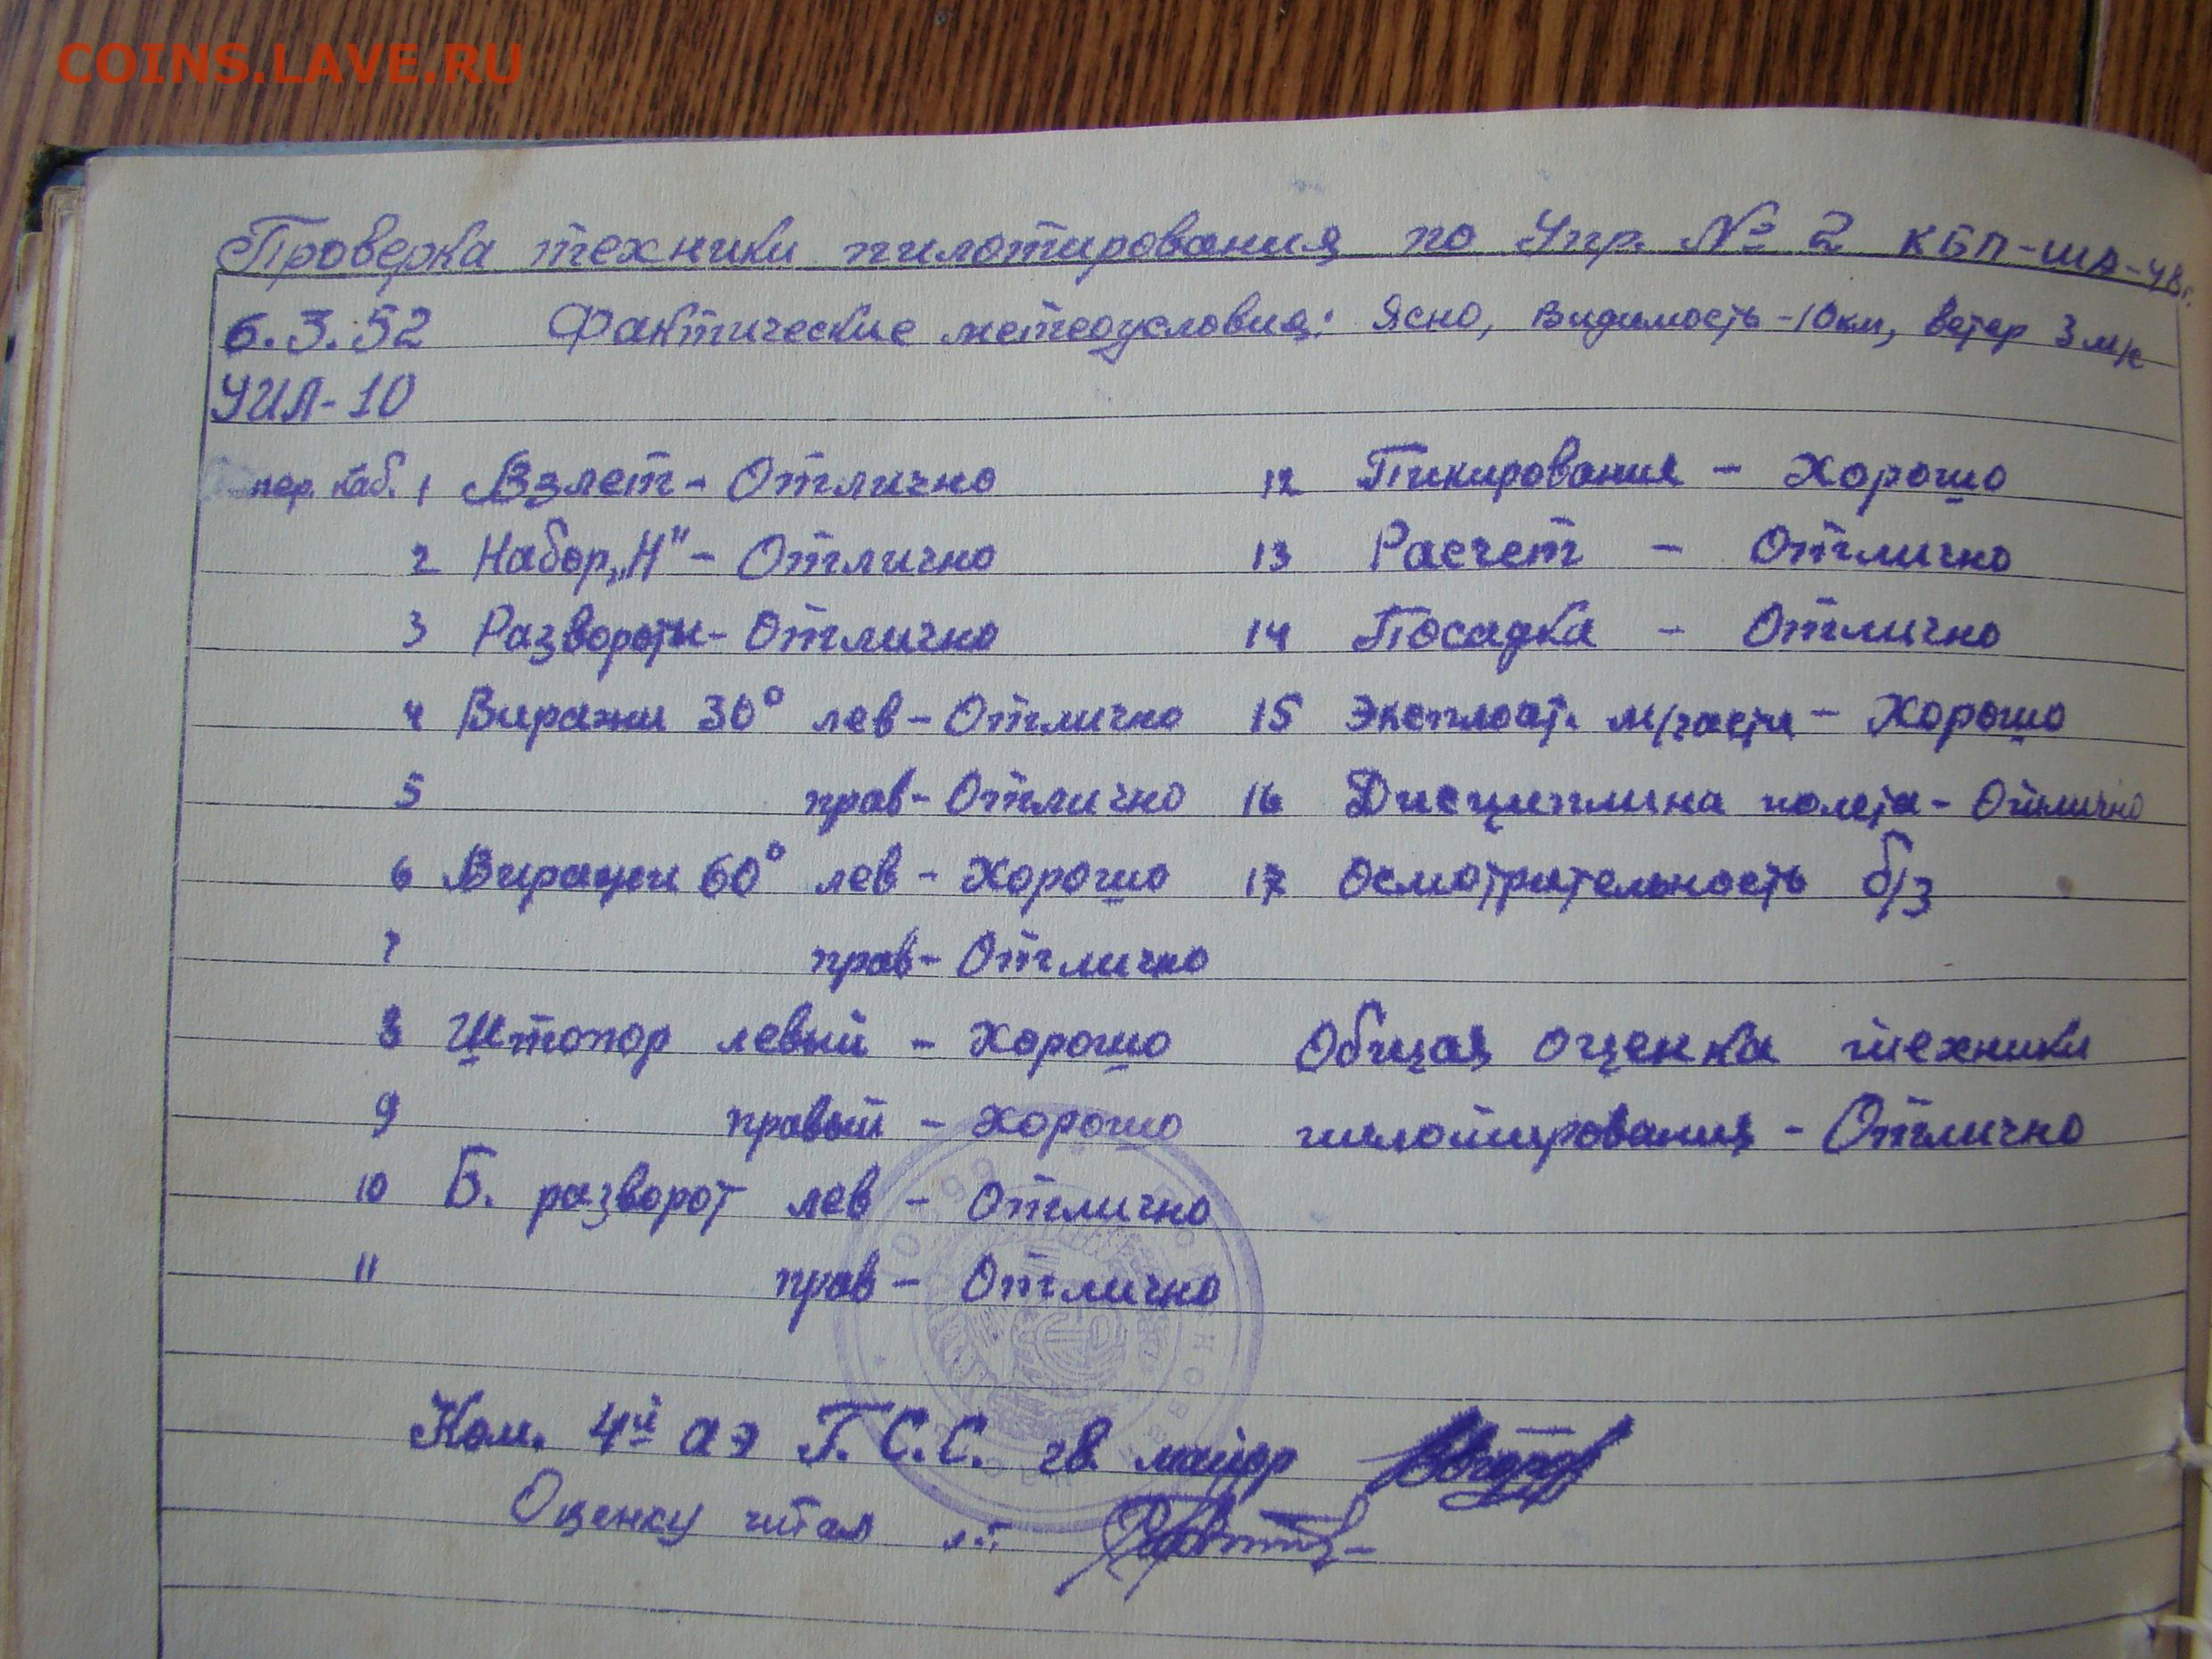 COINS.LAVE.RU
Проверка техники пилотирования по Упр. № 2 КБП-ША-48г.
6.3.52 Фактические метеоусловия: Ясно, видимость-10км, ветер 3 м/с
УИЛ-10
пер. каб. 1 Взлет - Отлично
2 Набор „Н" - Отлично
3 Развороты - Отлично
4 Виражи 30° лев - Отлично
5 прав - Отлично
6 Виражи 60° лев - Хорошо
7 прав - Отлично
8 Штопор левый - Хорошо
9 правый - Хорошо
10 Б. разворот лев - Отлично
11 прав - Отлично
12 Пикирования - Хорошо
13 Расчет - Отлично
14 Посадка - Отлично
15 Эксплоат. м/части - Хорошо
16 Дисциплина полета - Отлично
17 Осмотрительность б/з
Общая оценка техники
пилотирования - Отлично
Ком. 4й аэ Г.С.С. гв. майор
Оценку читал